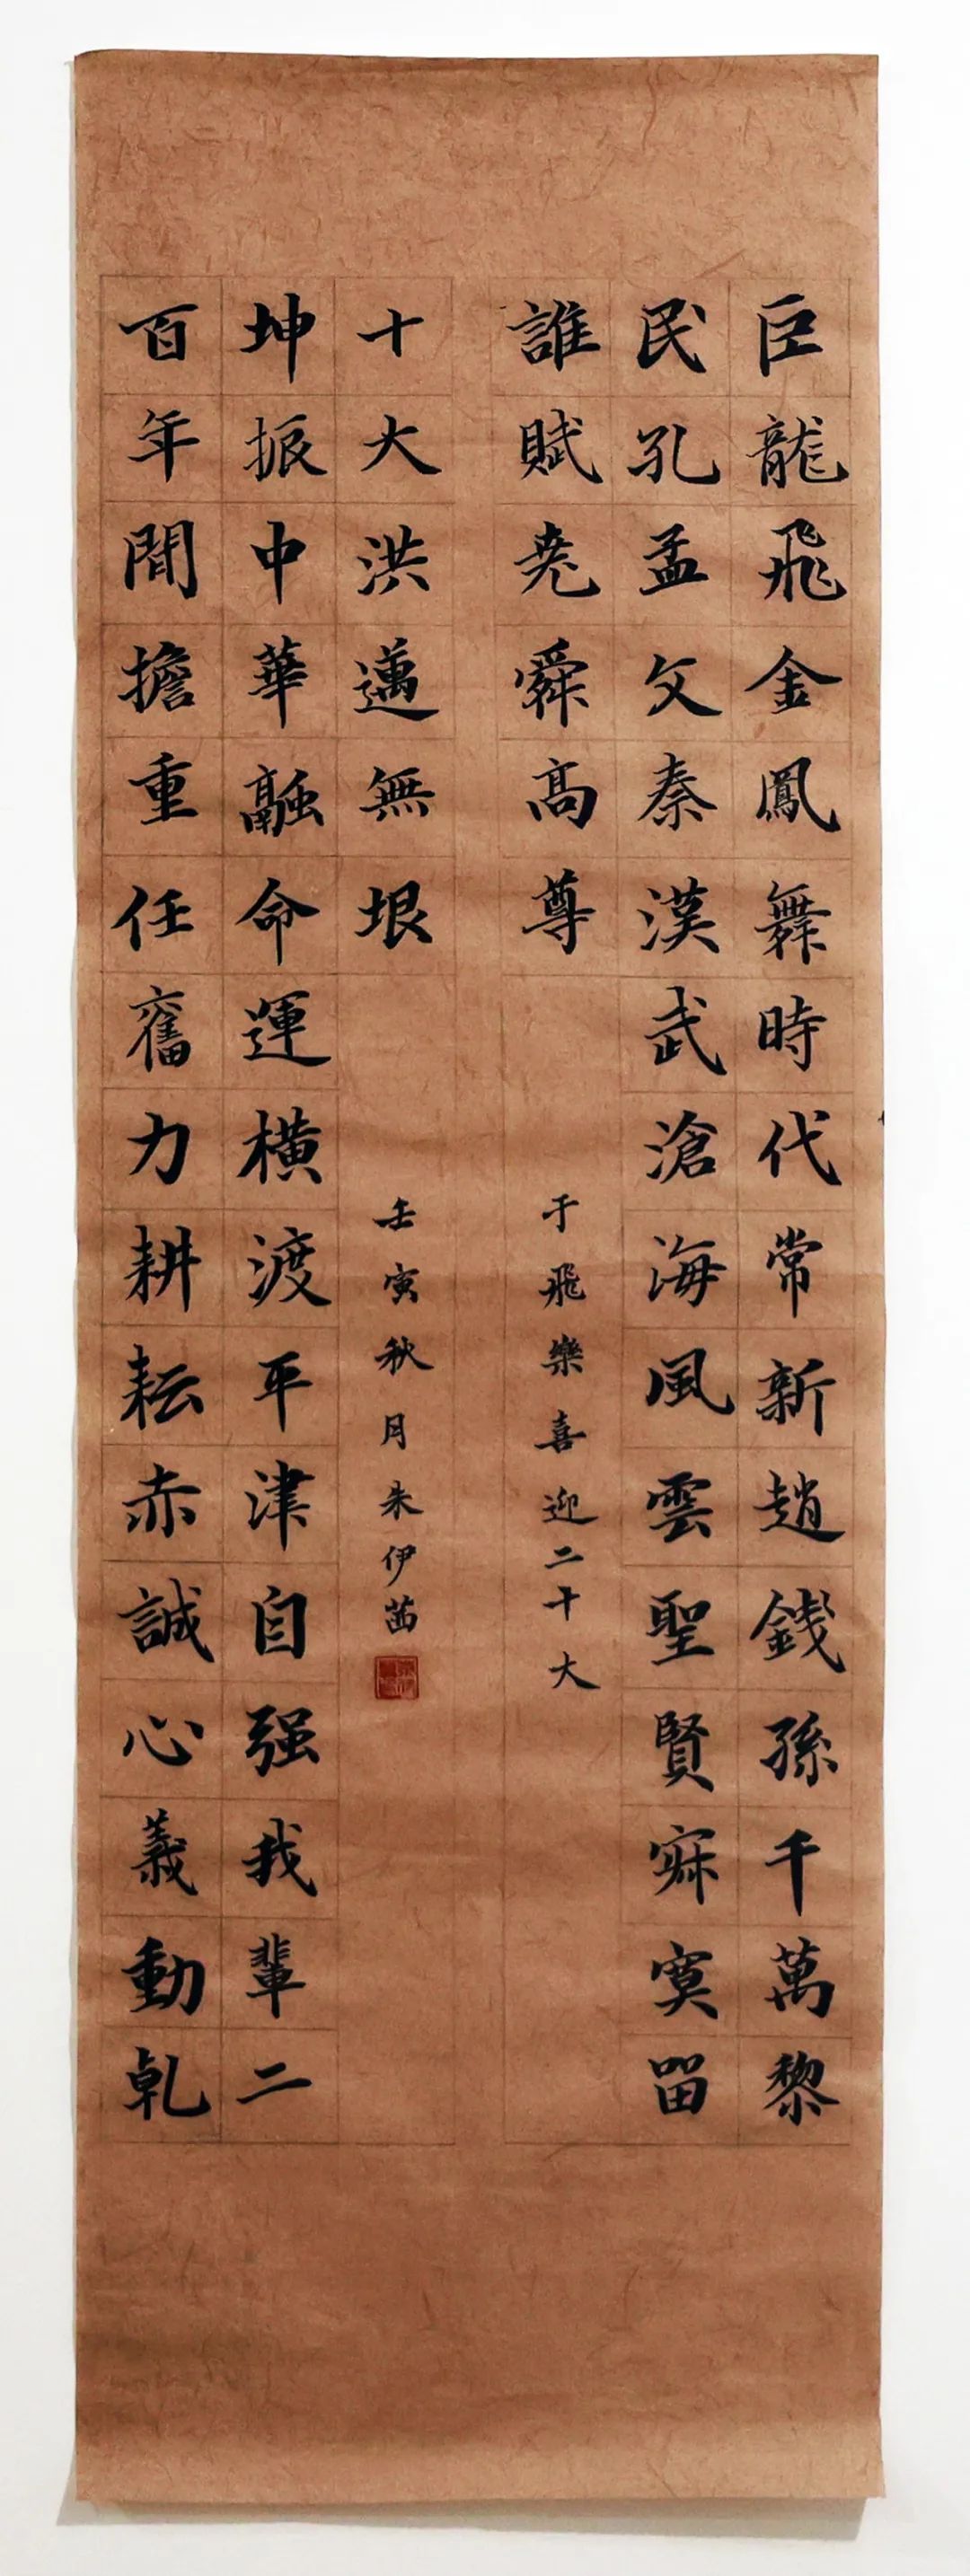 巨龍飛金鳳舞時代常新趙錢孫千萬黎
民孔孟文秦漢武滄海風雲聖賢寂寞留
誰賦堯舜高尊
于飛樂喜迎二十大
百年間擔重任奮力耕耘赤誠心義動乾
坤振中華融命運橫渡平津自强我輩二
十大洪邁無垠
壬寅秋月朱伊茜